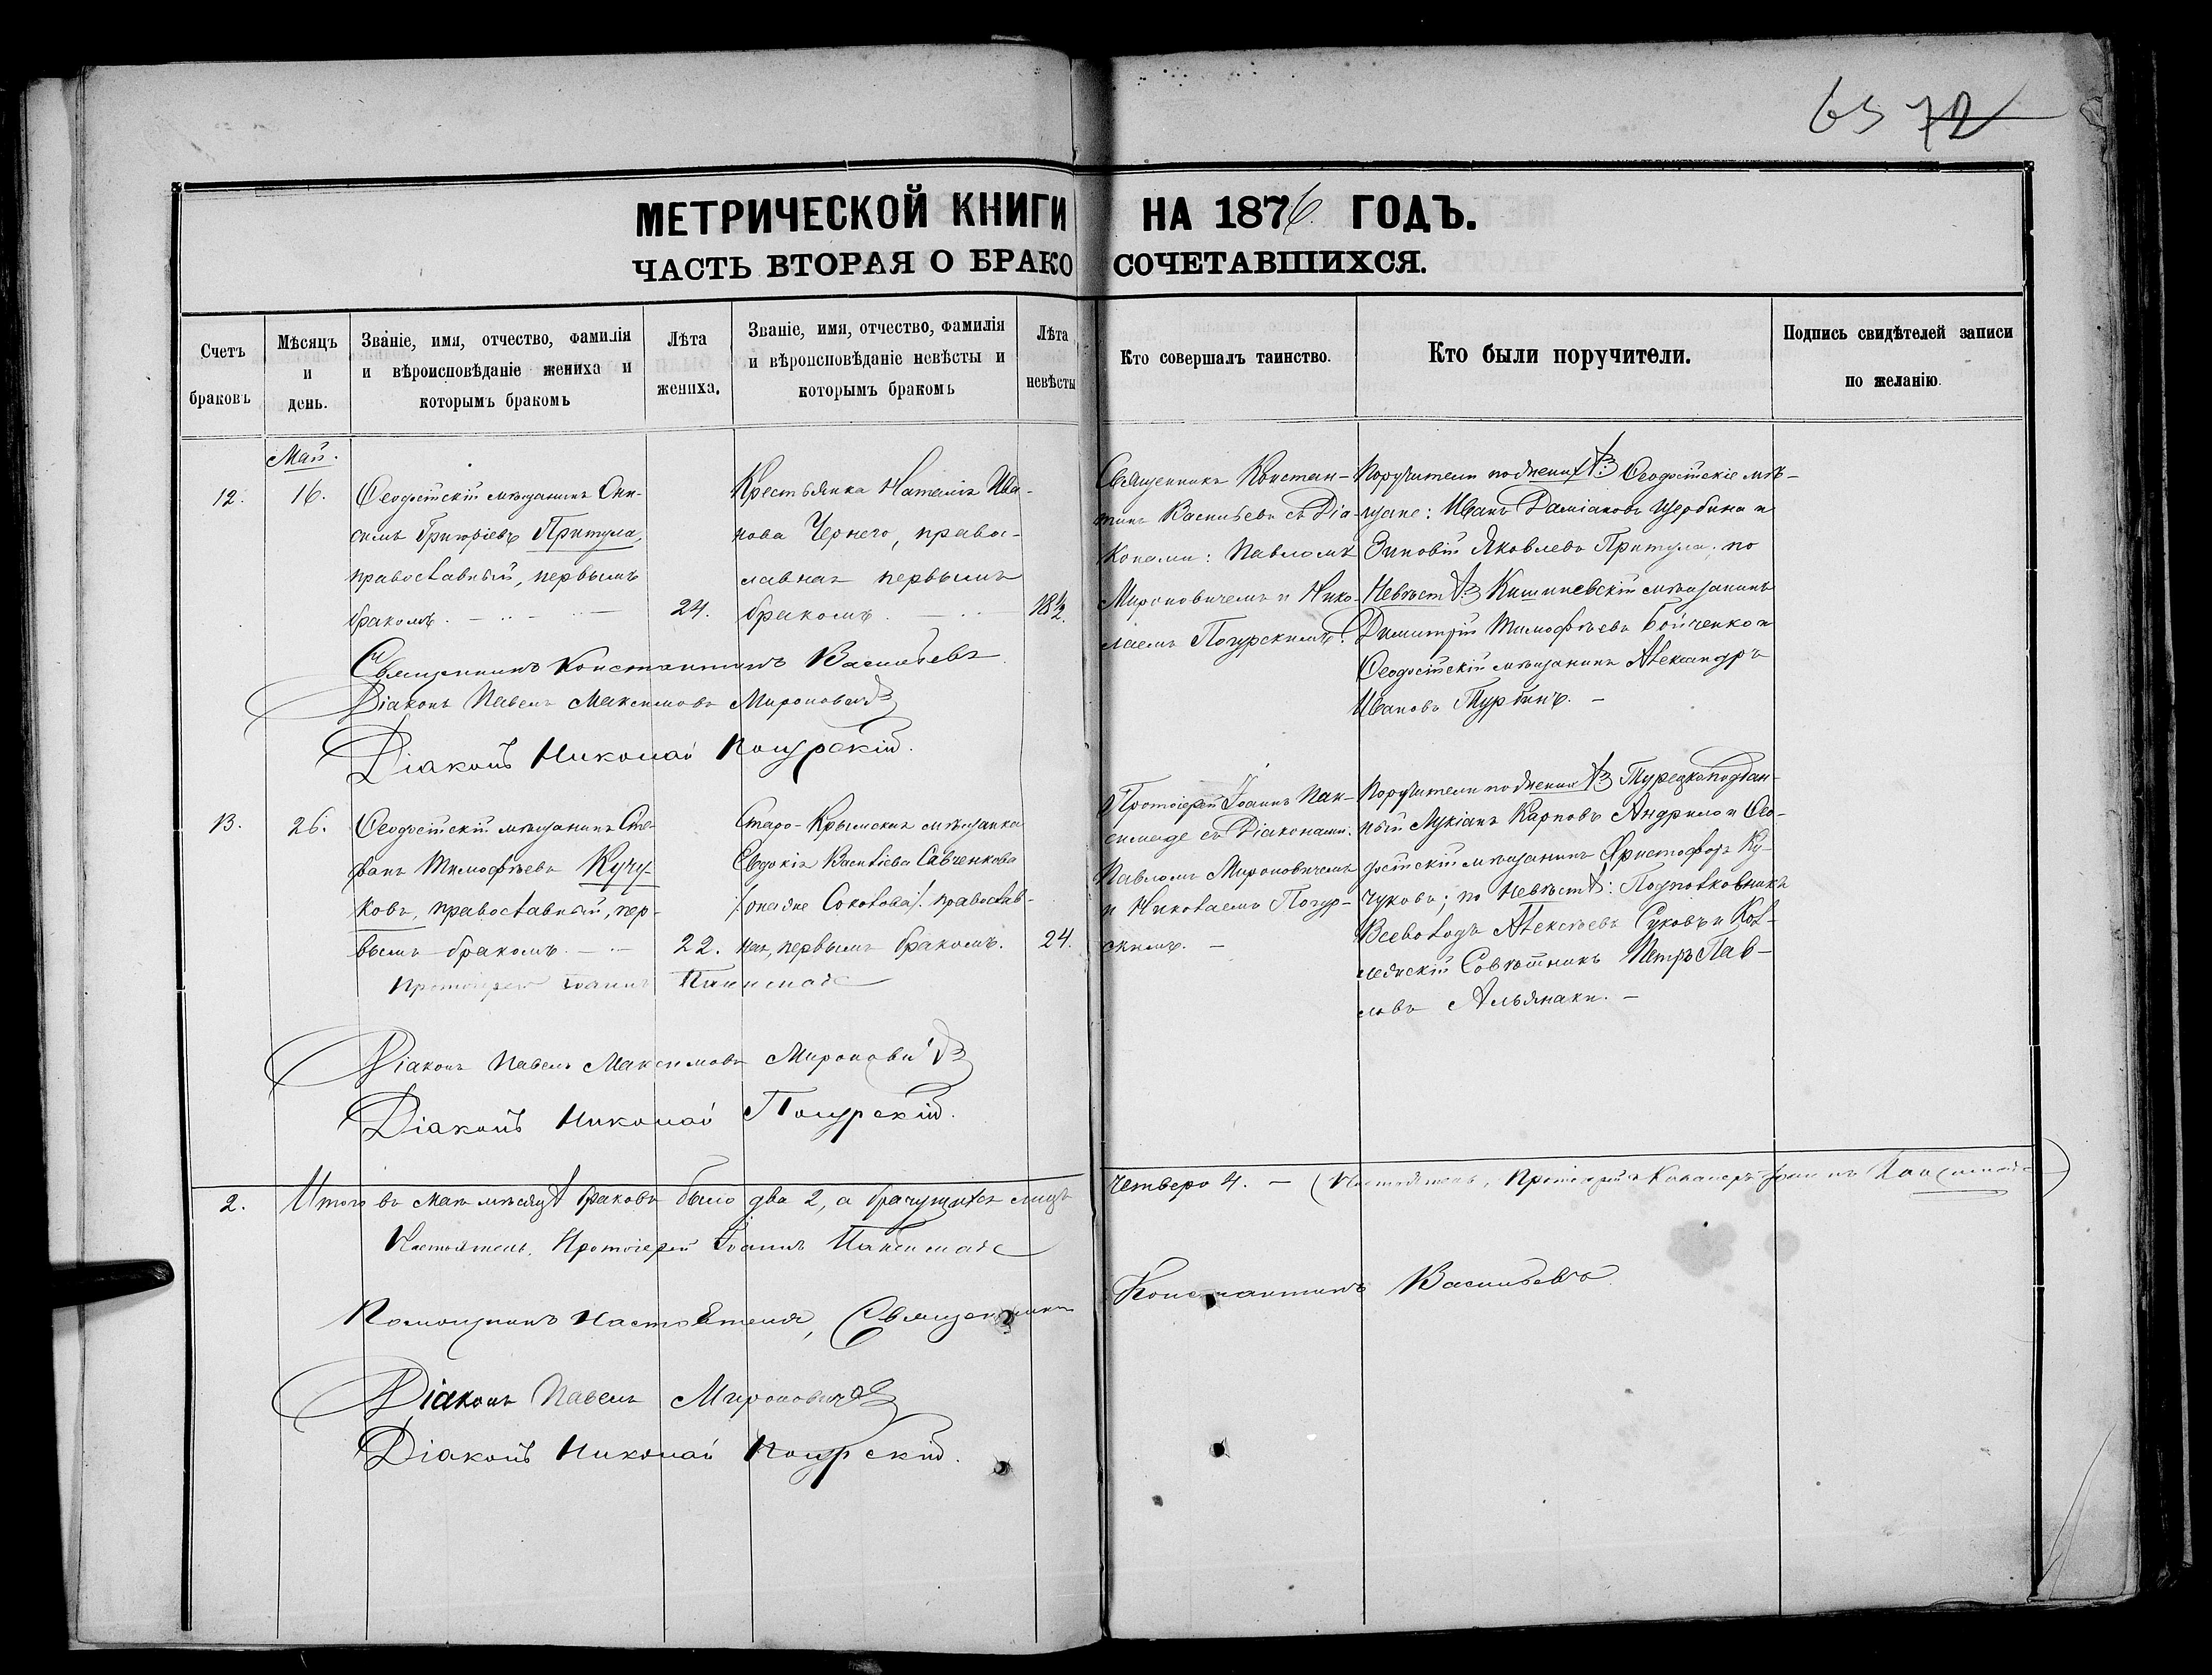 65 72
МЕТРИЧЕСКОЙ КНИГИ НА 1876 ГОДЪ.
ЧАСТЬ ВТОРАЯ О БРАКОСОЧЕТАВШИХСЯ.
Счетъ браковъ
Мѣсяцъ и день.
Званіе, имя, отчество, фамилія и вѣроисповѣданіе жениха и которымъ бракомъ
Лѣта жениха.
Званіе, имя, отчество, фамилія и вѣроисповѣданіе невѣсты и которымъ бракомъ
Лѣта невѣсты
Кто совершалъ таинство.
Кто были поручители.
Подпись свидѣтелей записи по желанію.
Май.
12.
16.
Ѳеодосійскій мѣщанинъ Они-
симъ Григоріевъ Притула,
православный, первымъ
бракомъ.
24.
Крестьянка Наталія Ива-
нова Чернего, правос-
лавная первымъ
бракомъ.
18½.
Священникъ Констан-
тинъ Васильевъ съ Діа-
конами: Павломъ
Мироновичемъ и Нико-
лаемъ Погурскимъ.
Поручители по женихѣ: Ѳеодосійскіе мѣ-
щане: Иванъ Даміановъ Щербина и
Зиновій Яковлевъ Притула; по
Невѣстѣ: Кишиневскій мѣщанинъ
Димитрій Тимофѣевъ Бойченко и
Ѳеодосійскій мѣщанинъ Александръ
Ивановъ Турбинъ.
Священникъ Константинъ Васильевъ
Діаконъ Павелъ Максимовъ Мироновичъ
Діаконъ Николай Погурскій.
13.
26.
Ѳеодосійскій мѣщанинъ Сте-
фанъ Тимофѣевъ Кучу-
ковъ, православный, пер-
вымъ бракомъ.
22.
Старо-Крымская мѣщанка
Евдокія Васильева Савченкова
/: онаяже Соколова :/ православ-
ная, первымъ бракомъ.
24.
Протоіерей Іоаннъ Пак-
симаде съ Діаконами:
Павломъ Мироновичемъ
и Николаемъ Погур-
скимъ.
Поручители по женихѣ Турецкоподдан-
ный Лукіанъ Карповъ Андрило и Ѳео-
досійскій мѣщанинъ Христофоръ Ку-
чуковъ; по Невѣстѣ: Подполковникъ
Всеволодъ Алексѣевъ Суковъ и Кол-
лежскій Совѣтникъ Петръ Пав-
ловъ Альянаки.
Протоіерей Іоаннъ Паксимаде
Діаконъ Павелъ Максимовъ Мироновичъ
Діаконъ Николай Погурскій.
2.
Итого въ Маѣ мѣсяцѣ браковъ было два 2, а брачущихся лицъ четверо 4. (Настоятель, Протоіерей и Кавалеръ Іоаннъ Паксимаде
Настоятель, Протоіерей Іоаннъ Паксимаде
Помощникъ Настоятеля, Священникъ Константинъ Васильевъ
Діаконъ Павелъ Мироновичъ
Діаконъ Николай Погурскій.